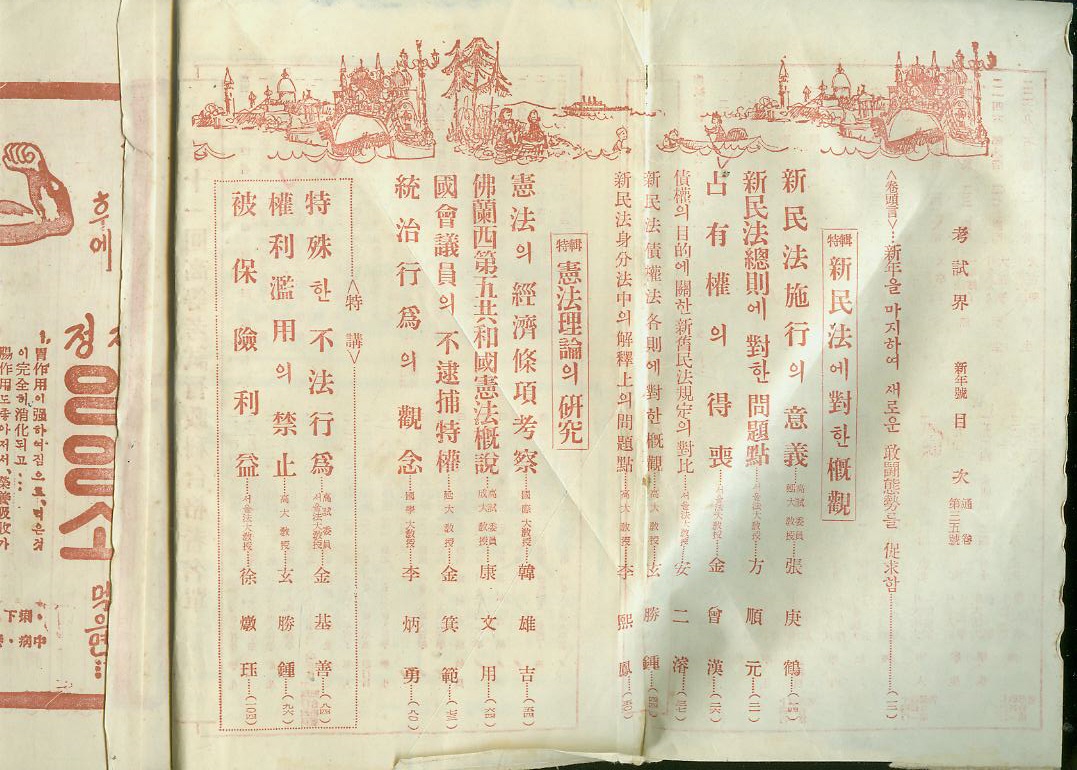 考試界 新年號 目次 通卷 第三五號
<卷頭言>…新年을 마지하여 새로운 敢鬪態勢를 促求함……(一二)
特輯 新民法에 對한 槪觀
新民法施行의 意義 高試委員 延大敎授……張庚鶴……(一四)
新民法總則에 對한 問題點 서울法大敎授……方順元……(二一)
占有權의 得喪 서울法大敎授……金曾漢……(二六)
債權의 目的에 關한 新舊民法規定의 對比 서울法大敎授……安二濬……(三七)
新民法債權法各則에 對한 槪觀 高大敎授……玄勝鍾……(四四)
新民法身分法中의 解釋上의 問題點 高大敎授……李熙鳳……(五〇)
特輯 憲法理論의 硏究
憲法의 經濟條項考察 國際大敎授……韓雄吉……(五四)
佛蘭西第五共和國憲法槪說 高試委員 成大敎授……康文用……(六四)
國會議員의 不逮捕特權 延大敎授……金箕範……(七三)
統治行爲의 觀念 國學大敎授……李炳勇……(八〇)
<特講>
特殊한 不法行爲 高試委員 서울法大敎授……金基善……(八四)
權利濫用의 禁止 高大敎授……玄勝鍾……(九六)
被保險利益 서울法大敎授……徐燉珏……(一〇四)
후에
정
1, 胃作用이 强하여짐으로, 먹은것
이 完全히 消化되고…
腸作用도 좋아저서, 榮養吸收가
먹으면…